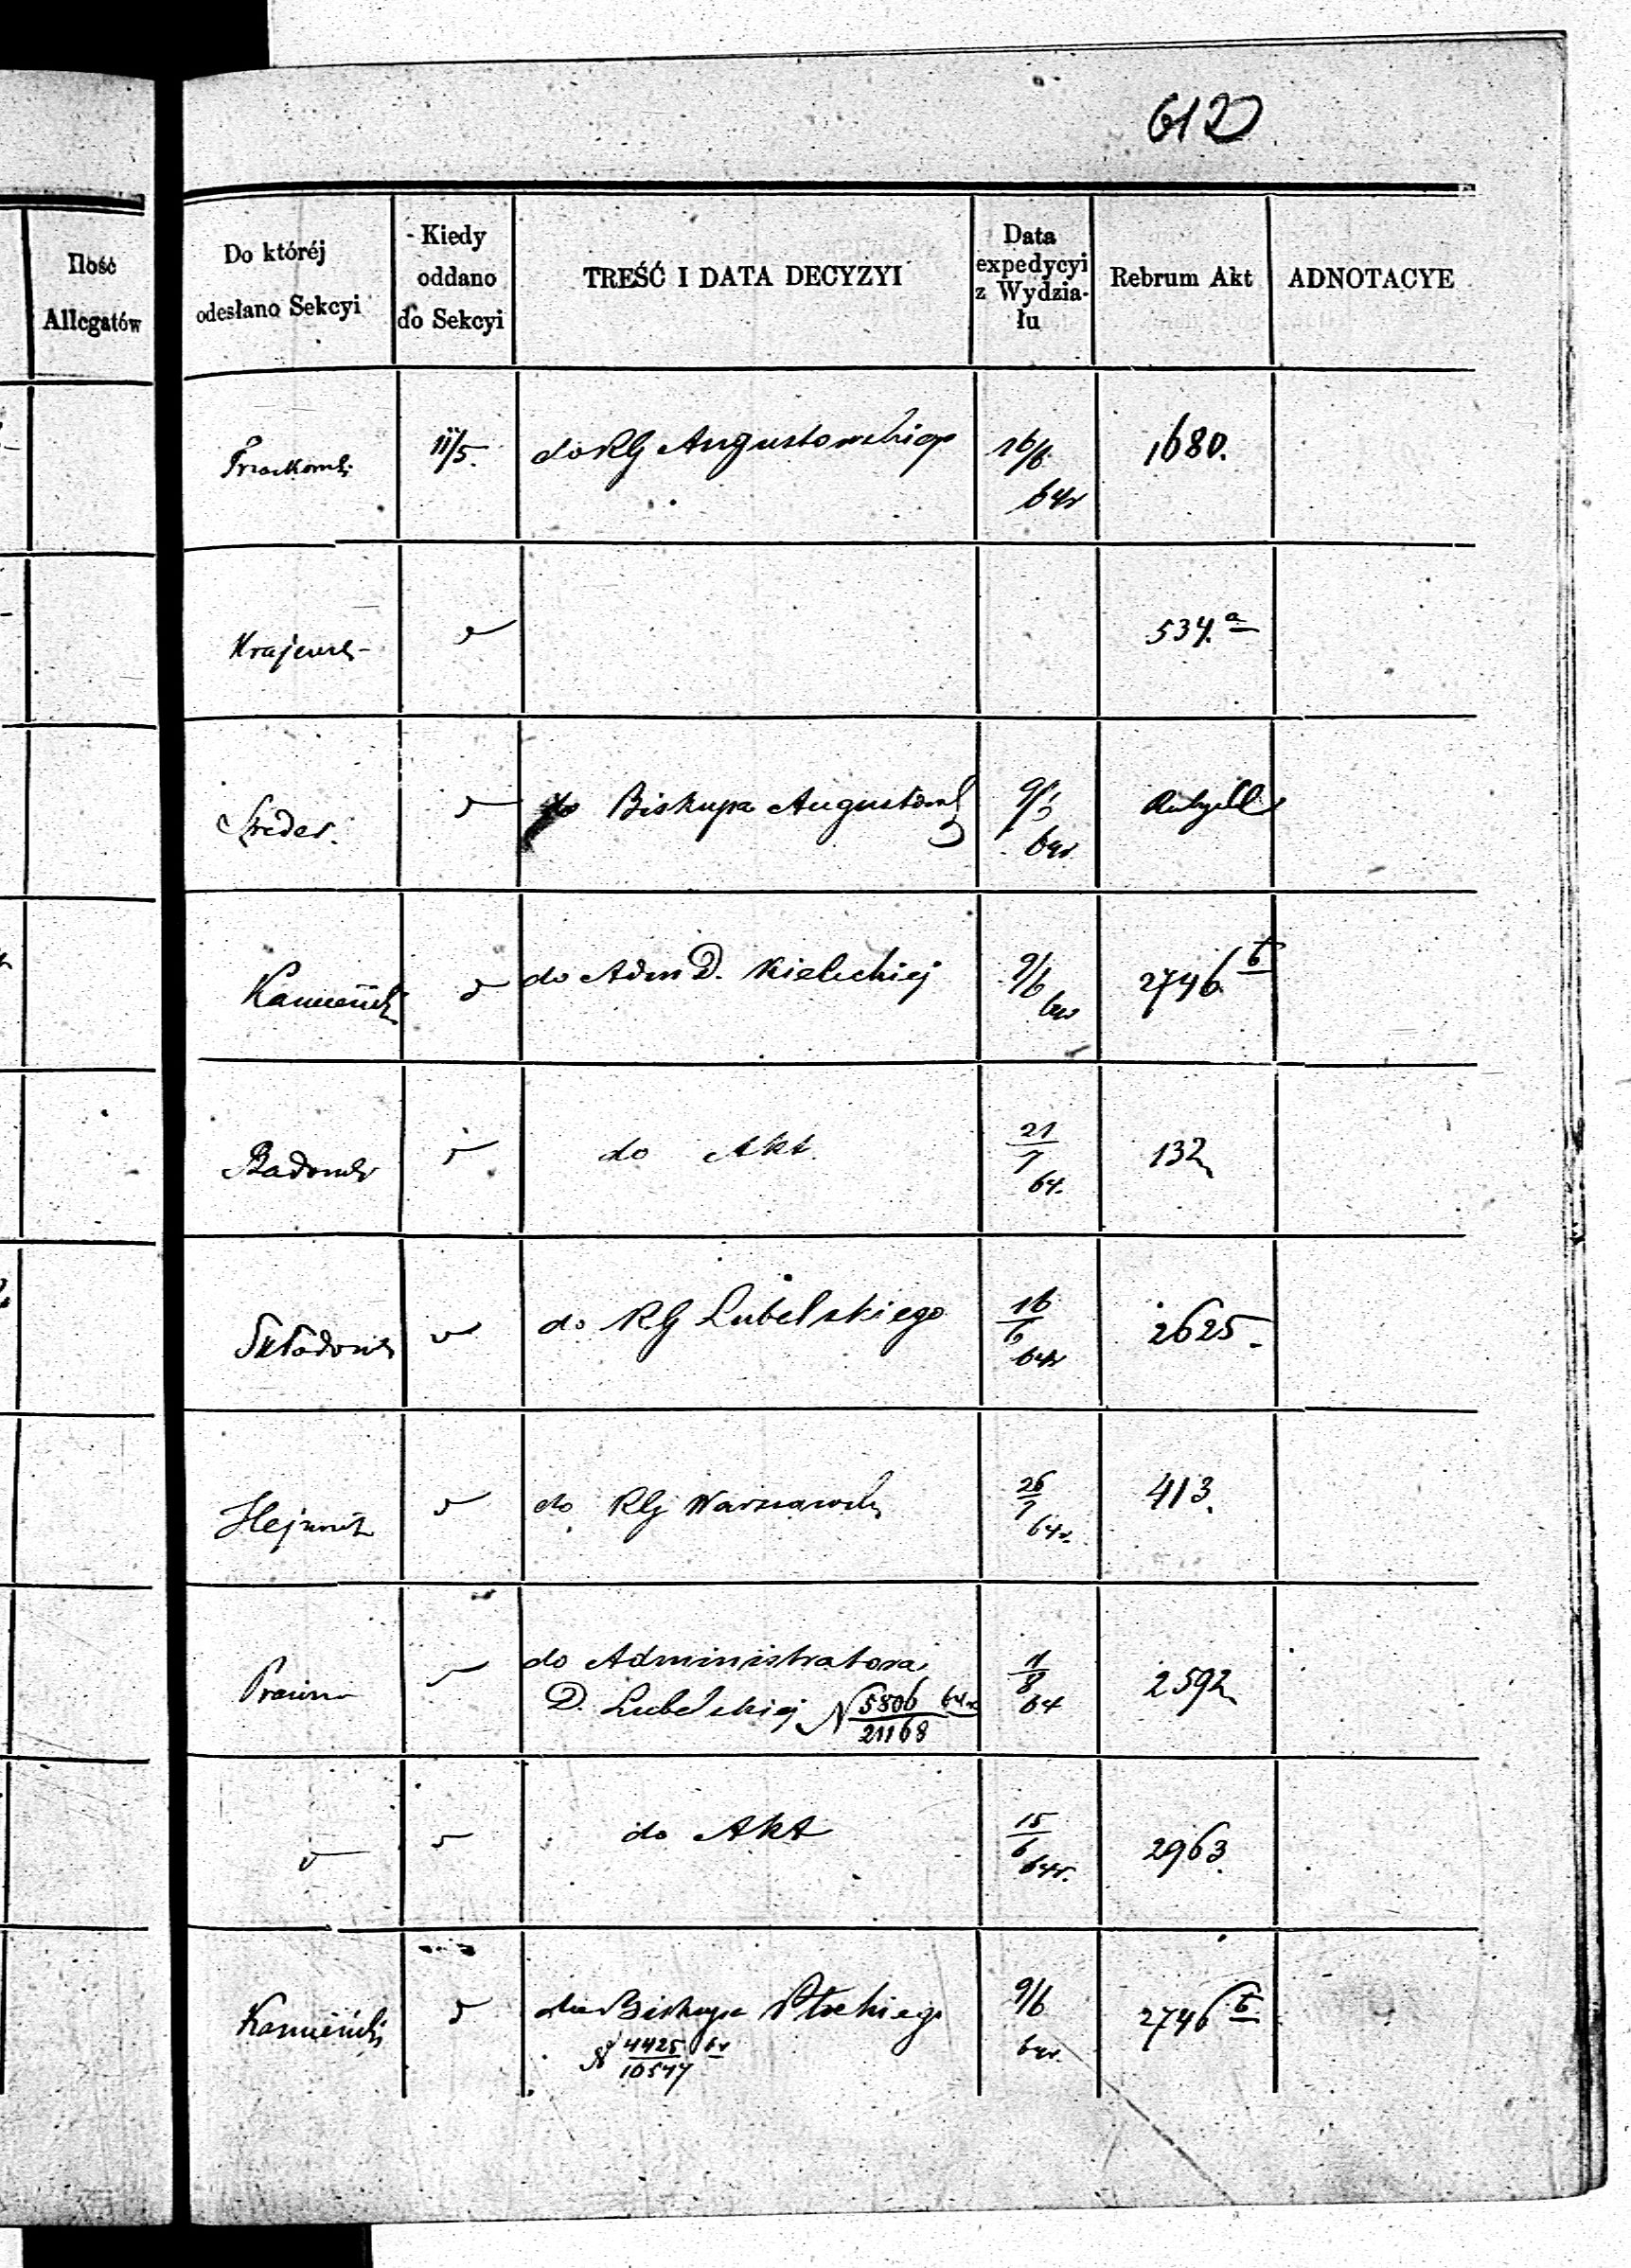 612
Ilość
Allegatów
Do któréj
odesłano Sekcyi
Kiedy
oddano
do Sekcyi
TREŚĆ I DATA DECYZYI
Data
expedycyi
z Wydzia-
łu
Rebrum Akt
ADNOTACYE
11/5.
do RG Augustowskiego
16/6
64r
1680.
534.a
Szeder.
do Biskupa Augustowsk
64r
Kamieńsk
do Adm D. Kieleckiej
9/6
64r
2746 b
Radomsk
do Akt
21/7
64.
132
do RG Lubelskiego
16/6
64r
2625.
do RG Warszawsk
26/7
64r.
413.
Prawna
do Administratora
D. Lubelskiej N 5806/21168 64r
11/8
64
2592
do Akt
15/6
64r.
2963
Kamieńsk
do Biskupa Płockiego
N 4425/10547 64
9/6
64r.
2746 b